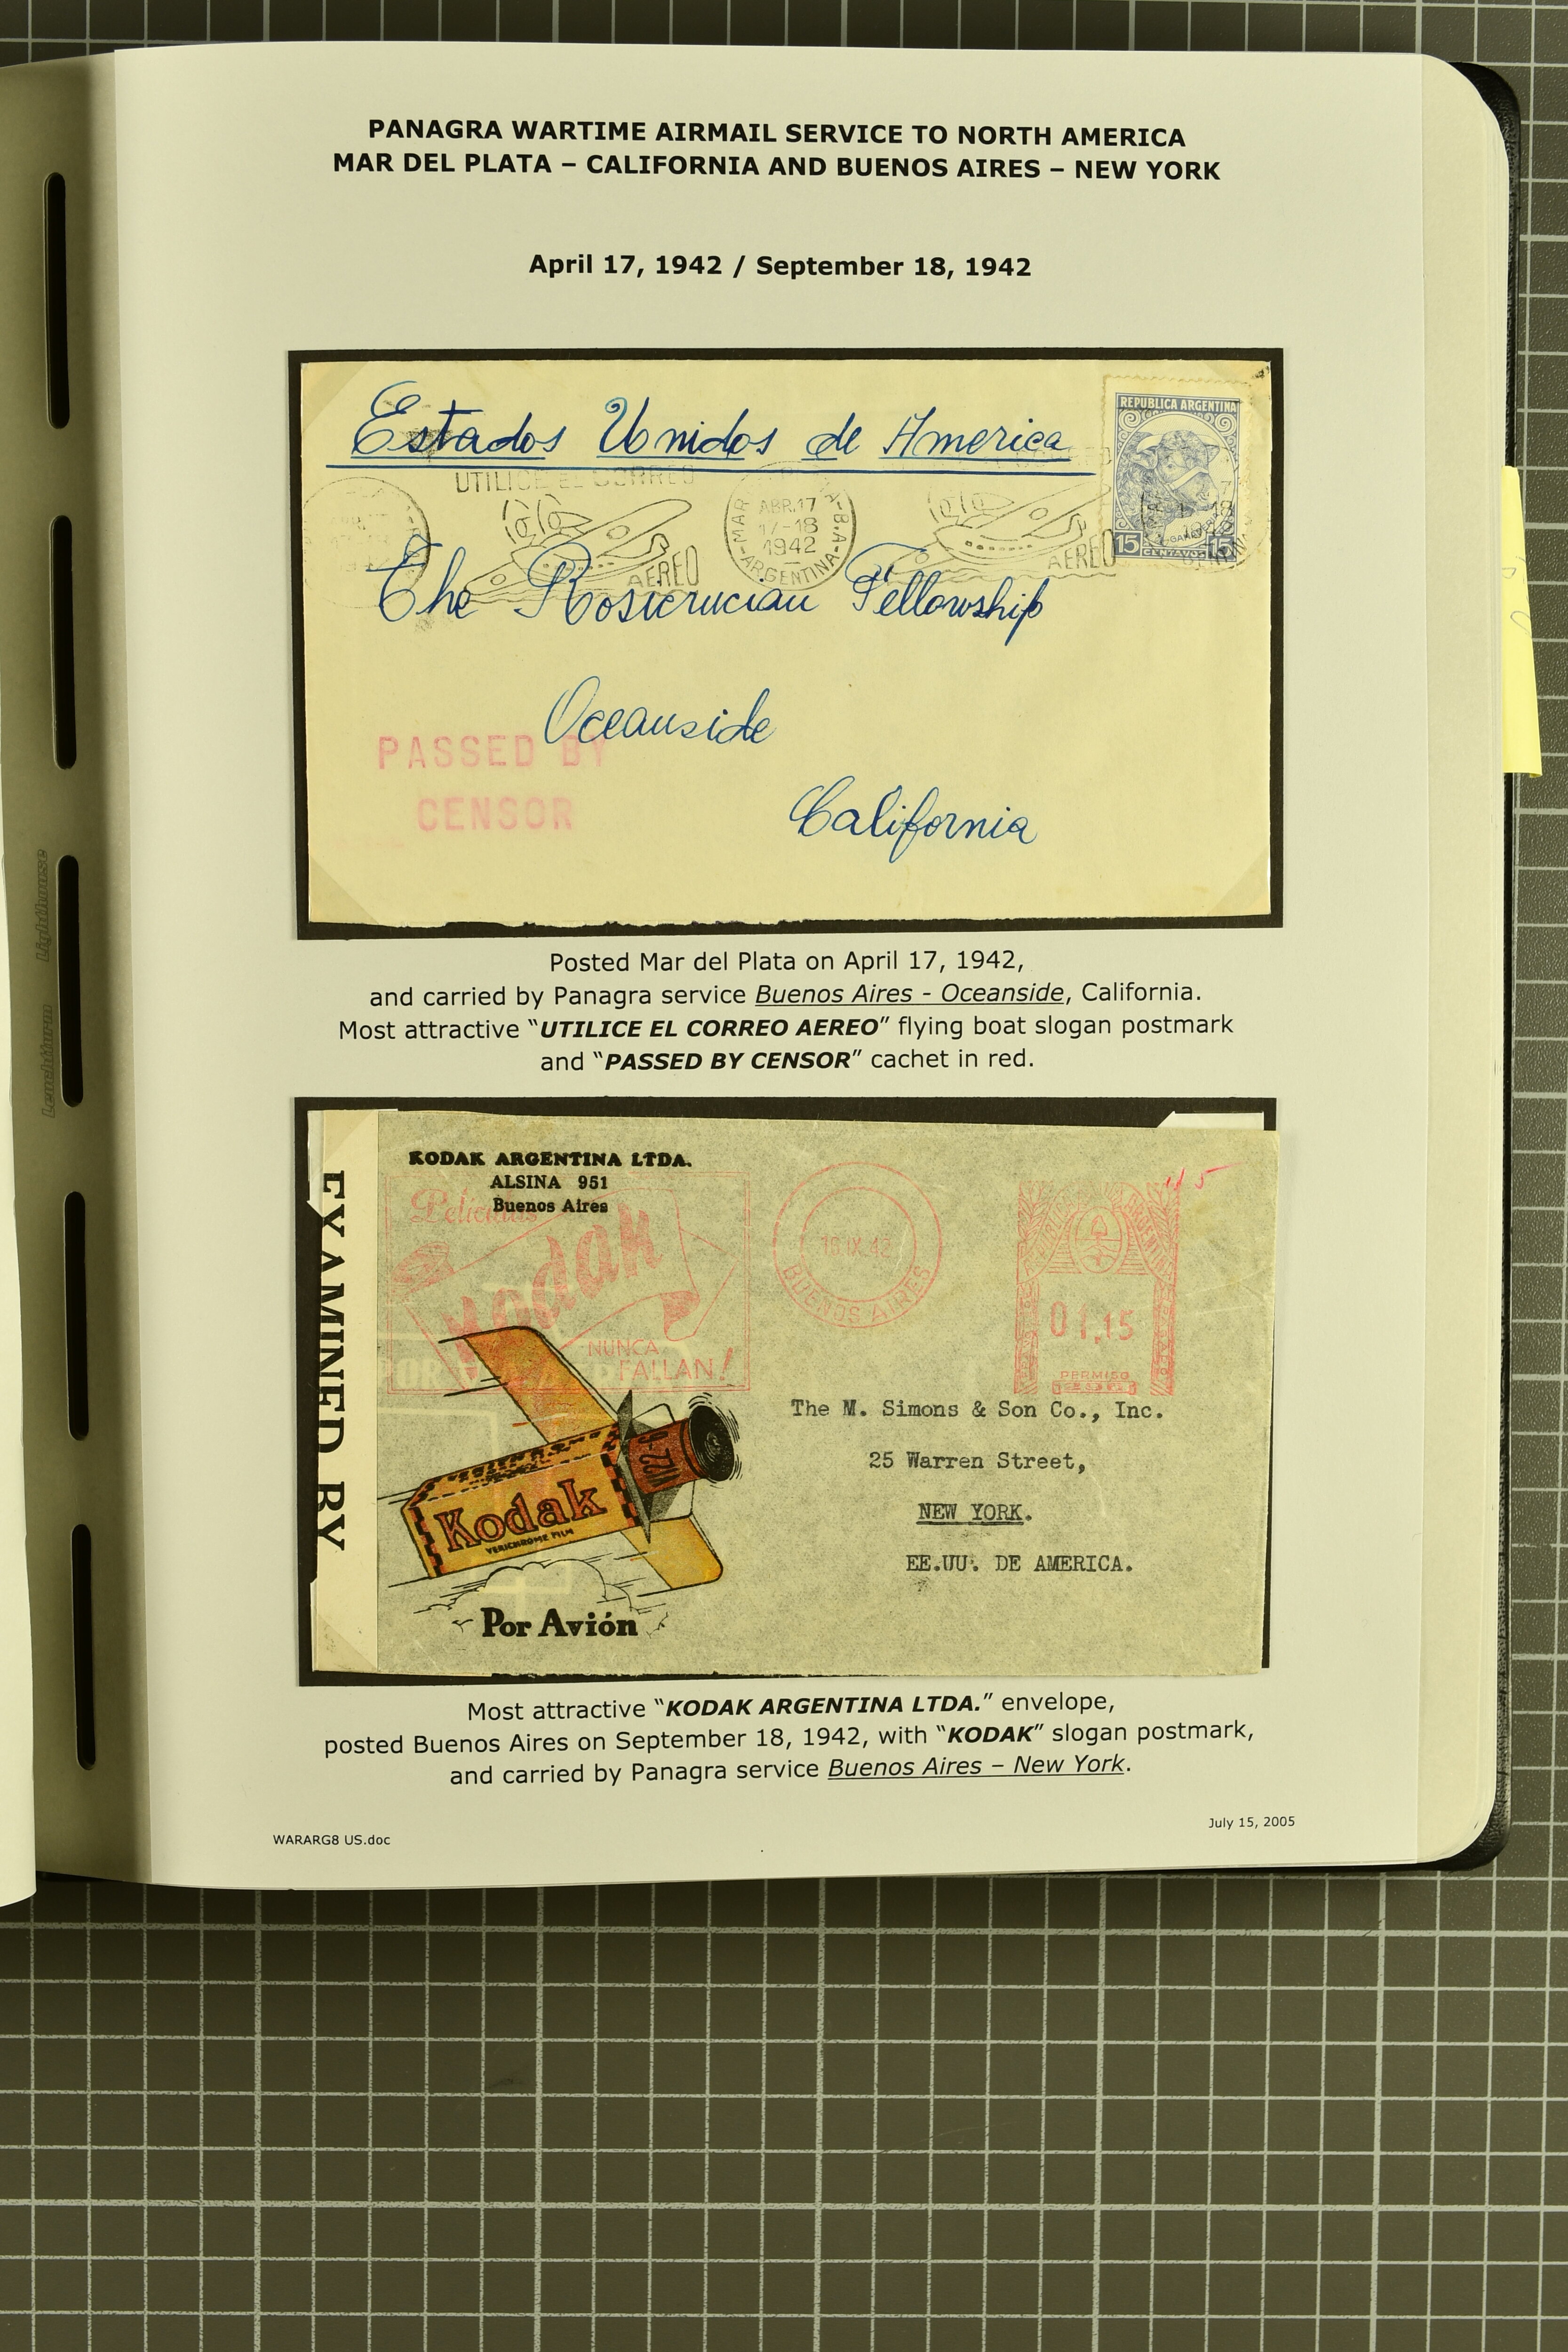 PANAGRA WARTIME AIRMAIL SERVICE TO NORTH AMERICA
MAR DEL PLATA – CALIFORNIA AND BUENOS AIRES – NEW YORK
April 17, 1942 / September 18, 1942
Estados Unidos de America
REPUBLICA ARGENTINA
15 CENTAVOS 15
UTILICE EL CORREO
AEREO
MAR
ABR.17
17-18
1942
B.A.
ARGENTINA
AEREO
The Rosicrucian Fellowship
Oceanside
California
PASSED BY
CENSOR
Posted Mar del Plata on April 17, 1942,
and carried by Panagra service Buenos Aires - Oceanside, California.
Most attractive “UTILICE EL CORREO AEREO” flying boat slogan postmark
and “PASSED BY CENSOR” cachet in red.
EXAMINED BY
KODAK ARGENTINA LTDA.
ALSINA 951
Buenos Aires
Películas
Kodak
NUNCA
FALLAN!
18 IX 42
BUENOS AIRES
01,15
PERMISO
The M. Simons & Son Co., Inc.
25 Warren Street,
NEW YORK.
EE.UU. DE AMERICA.
V122
Kodak
VERICHROME FILM
Por Avión
Most attractive “KODAK ARGENTINA LTDA.” envelope,
posted Buenos Aires on September 18, 1942, with “KODAK” slogan postmark,
and carried by Panagra service Buenos Aires – New York.
WARARG8 US.doc
July 15, 2005
Leuchtturm Lighthouse